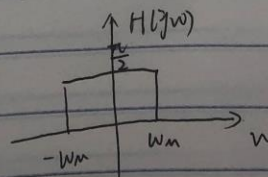 H(jw)
π/2
-wm wm w